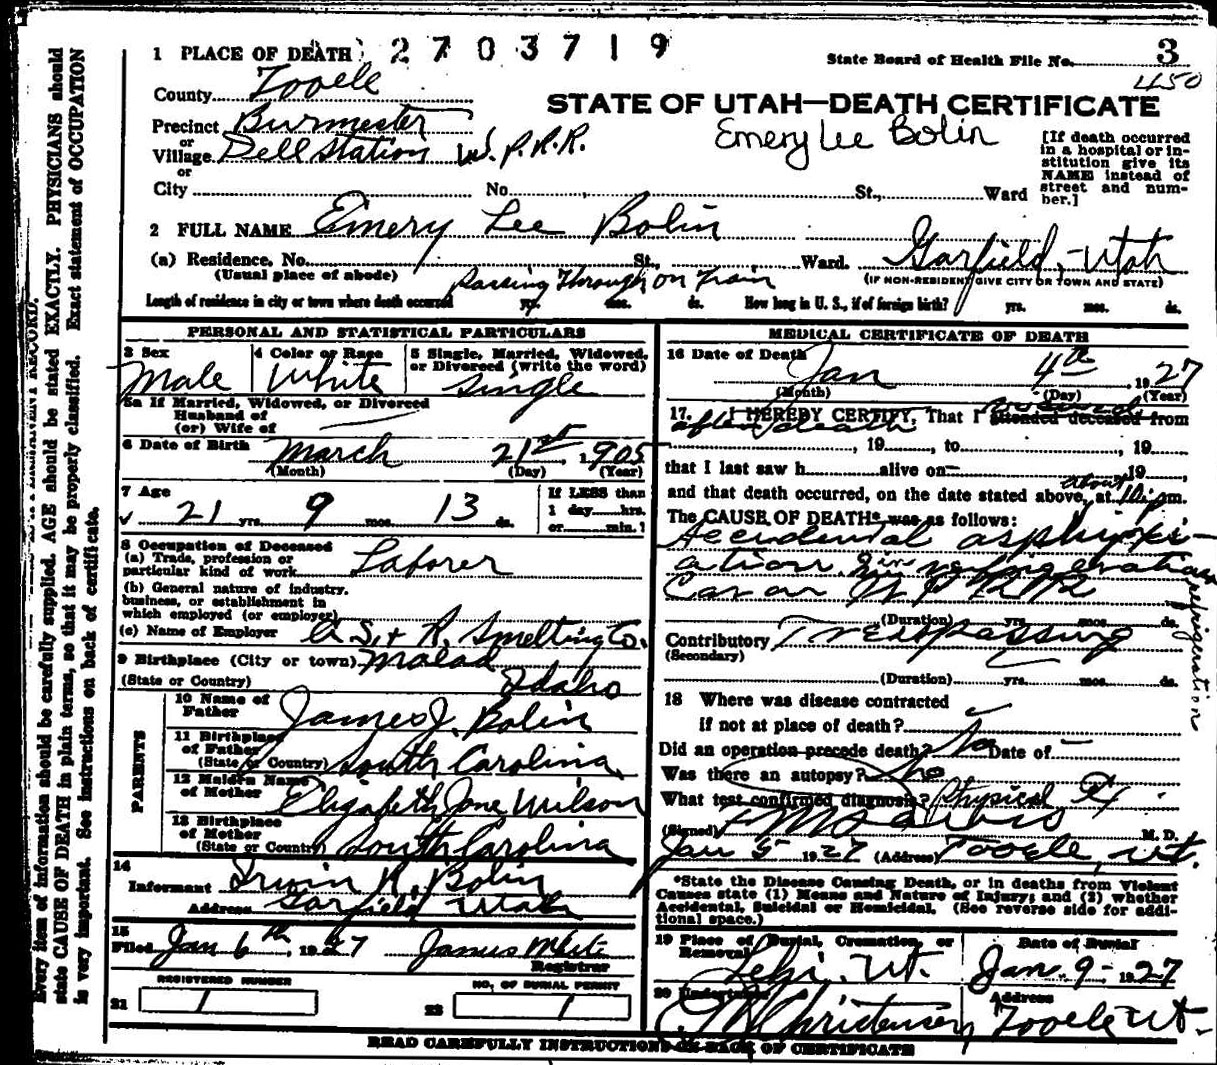 1 PLACE OF DEATH 2703719
State Board of Health File No. 3
450
County Tooele
STATE OF UTAH—DEATH CERTIFICATE
Precinct Burmester
Emery Lee Bolin
or
Village Dell Station W.P.R.R.
or
City No. St., Ward
[If death occurred
in a hospital or in-
stitution give its
NAME instead of
street and num-
ber.]
2 FULL NAME Emery Lee Bolin
(a) Residence. No. St., Ward. Garfield, Utah
(Usual place of abode) (IF NON-RESIDENT GIVE CITY OR TOWN AND STATE)
passing Through on Train
Length of residence in city or town where death occurred yrs. mos. ds. How long in U. S., if of foreign birth? yrs. mos. ds.
PERSONAL AND STATISTICAL PARTICULARS
3 Sex Male
4 Color or Race White
5 Single, Married, Widowed,
or Divorced (write the word)
Single
5a If Married, Widowed, or Divorced
Husband of
(or) Wife of
6 Date of Birth March 21st, 1905
(Month) (Day) (Year)
7 Age
21 yrs. 9 mos. 13 ds.
If LESS than
1 day hrs.
or min.?
8 Occupation of Deceased
(a) Trade, profession or
particular kind of work Laborer
(b) General nature of industry,
business, or establishment in
which employed (or employer)
(c) Name of Employer A. S. + R. Smelting Co.
9 Birthplace (City or town) Malad
(State or Country) Idaho
PARENTS
10 Name of
Father James J. Bolin
11 Birthplace
of Father
(State or Country) South Carolina
12 Maiden Name
of Mother Elizabeth Jane Wilson
13 Birthplace
of Mother
(State or Country) South Carolina
14
Informant Irwin R. Bolin
Address Garfield Utah
15
Filed Jan 6th, 1927 James
Registrar
REGISTERED NUMBER
21 1
NO. OF BURIAL PERMIT
22 1
MEDICAL CERTIFICATE OF DEATH
16 Date of Death Jan 4th 1927
(Month) (Day) (Year)
17. I HEREBY CERTIFY, That I attended deceased from
after death
, 19 , to , 19 ,
that I last saw h alive on 19 ,
about
and that death occurred, on the date stated above, at 10 p m.
The CAUSE OF DEATH* was as follows:
Accidental asphyxi-
ation in refrigeration
Car on W P RR
refrigeration
(Duration) yrs. mos. ds.
Contributory Trespassing
(Secondary)
(Duration) yrs. mos. ds.
18 Where was disease contracted
if not at place of death?
Did an operation precede death? No Date of
Was there an autopsy? no
What test confirmed diagnosis? Physical Ex
(Signed) M. D.
Jan 5 1927 (Address) Tooele, Ut.
*State the Disease Causing Death, or in deaths from Violent
Causes state (1) Means and Nature of Injury; and (2) whether
Accidental, Suicidal or Homicidal. (See reverse side for addi-
tional space.)
19 Place of Burial, Cremation, or
Removal
Lehi, Ut.
Date of Burial
Jan. 9- 1927
20 Undertaker Christensen
Address
Tooele Ut.
READ CAREFULLY INSTRUCTIONS ON BACK OF CERTIFICATE
Every item of information should be carefully supplied. AGE should be stated EXACTLY. PHYSICIANS should
state CAUSE OF DEATH in plain terms, so that it may be properly classified. Exact statement of OCCUPATION
is very important. See instructions on back of certificate.